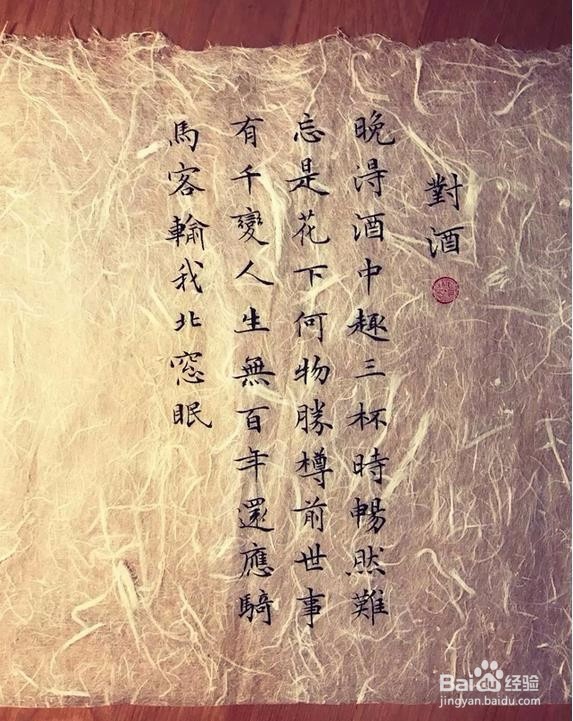 對酒
晚淂酒中趣三杯時暢然難
忘是花下何物勝樽前世事
有千變人生無百年還應騎
馬客輸我北窓眠
Baidu 经验
jingyan.baidu.com